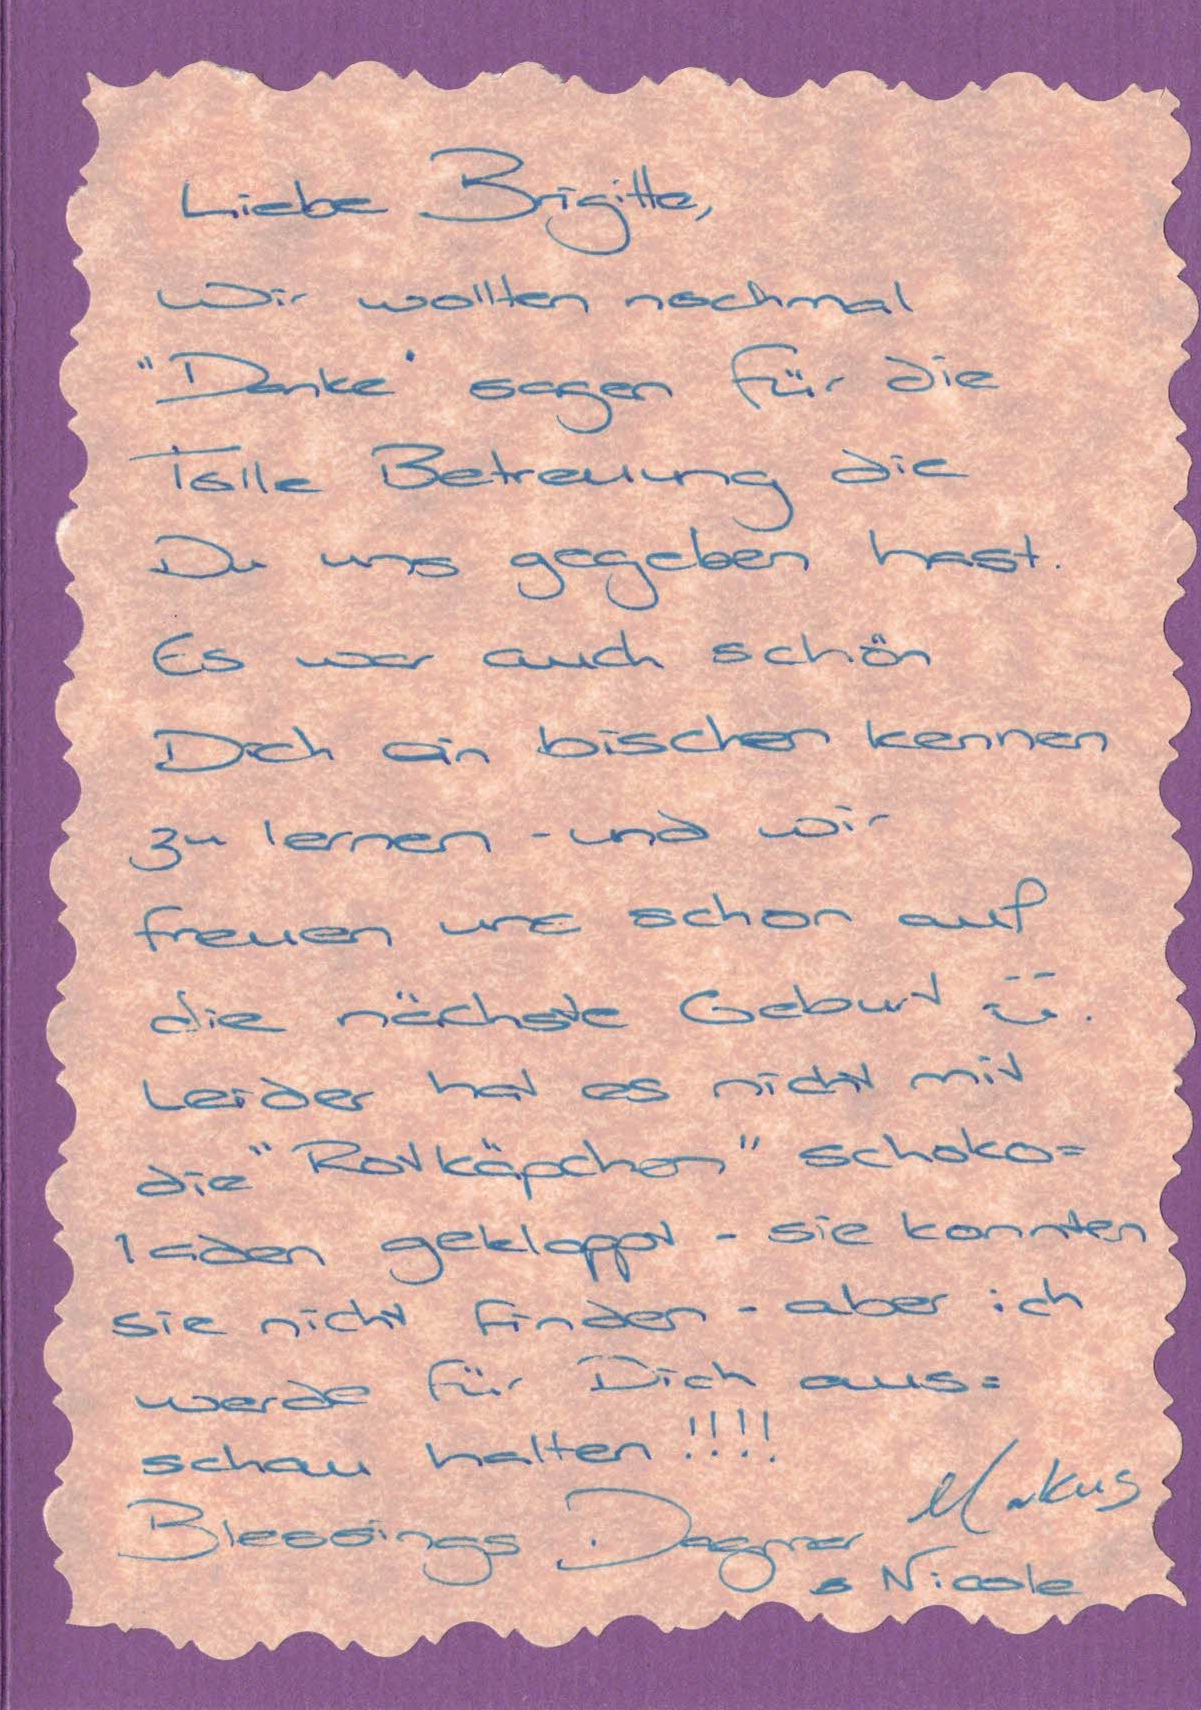 Liebe Brigitte,
Wir wollten nochmal
"Danke" sagen für die
Tolle Betreuung die
Du uns gegeben hast.
Es war auch schön
Dich ein bischen kennen
zu lernen - und wir
freuen uns schon auf
die nächste Geburt ü.
Leider hat es nicht mit
die "Rotkäpchen" schoko=
laden geklappt - sie konnten
sie nicht finden - aber ich
werde für Dich aus=
schau halten !!!!
Markus
Blessings Dagmar
& Nicole